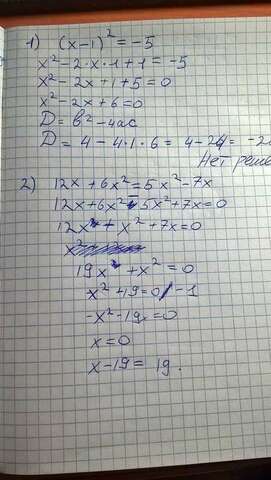 1) (x-1)² = -5
x²-2·x·1+1 = -5
x²-2x+1+5=0
x²-2x+6=0
D = b²-4ac
D = 4-4·1·6 = 4-24 = -20
Нет реше
2) 12x+6x²=5x²-7x
12x+6x²-5x²+7x=0
12x+x²+7x=0
19x+x²=0
x²+19=0/·-1
-x²-19x=0
x=0
x-19= 19.